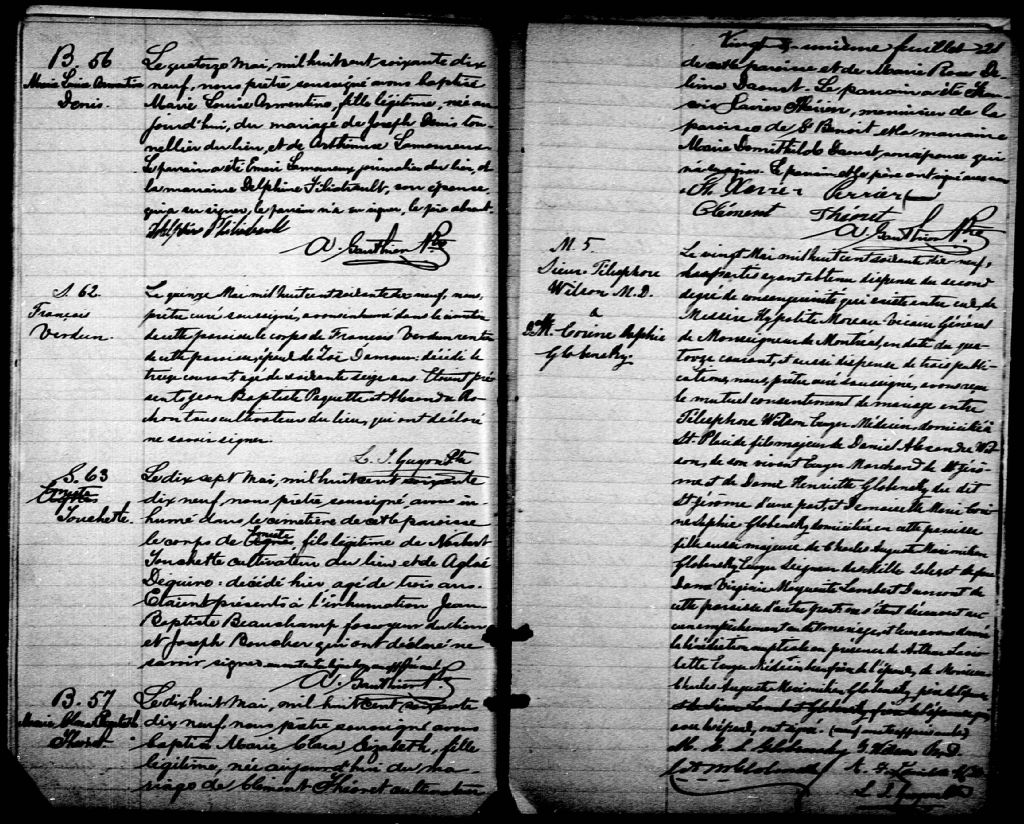 B. 56
Marie Louise Arventine
Denis.
Le quatorze Mai, mil huit cent soixante dix
neuf, nous prêtre soussigné avons baptisé
Marie Louise Arventine, fille légitime, née au
jourd'hui, du mariage de Joseph Denis ton-
nellier du lieu, et de Arthémise Lamoureux
Le parrain a été Emeri Lamoureux journalier du lieu, et
la marraine Delphine Filiatrault, son épouse,
qui a su signer, le parrain n'a su signer, le père absent.
Delphine Philiatrault
A. Gauthier Ptre
S. 62
François
Verdun.
Le quinze Mai mil huit cent soixante dix neuf, nous,
prêtre curé soussigné, avons inhumé dans le cimetière
de cette paroisse le corps de François Verdun rentier
de cette paroisse, époux de Zoé Damour: décédé le
treize courant, agé de soixante seize ans. Etaient pré-
sents Jean Baptiste Paquette et Alexandre Ro-
chon tous cultivateurs du lieu, qui ont déclaré
ne savoir signer.
L. I. Guyon Ptre
S. 63
Touchette.
Le dix sept Mai, mil huit cent soixante
dix neuf, nous prêtre soussigné avons in-
humé dans le cimetière de cette paroisse
le corps de fils légitime de Norbert
Touchette cultivateur du lieu et de Aglaé
Deguire: décédé hier, agé de trois ans.
Etaient présents à l'inhumation Jean
Baptiste Beauchamp fossoyeur du lieu
et Joseph Boucher qui ont déclaré ne
savoir signer
A. Gauthier Ptre
B. 57
Marie Clara Elizabeth
Théoret
Le dix huit Mai, mil huit cent soixante
dix neuf, nous prêtre soussigné avons
baptisé Marie Clara Elizabeth, fille
légitime, née aujourd'hui du ma-
riage de Clément Théoret cultivateur
Vingt & unième feuillet 21
de cette paroisse et de Marie Rose De-
lima Daoust. Le parrain a été Fran-
çois Xavier, menuisier de la
paroisse de St Benoit et la marraine
Marie Domithilde Daoust, son épouse qui
n'a su signer. Le parrain et le père ont signé avec nous
Xavier
Clément Théoret
A. Gauthier Ptre
M. 5
Sieur Télesphore
Wilson M.D.
&
Dlle M. Corine Sophie
Globensky.
Le vingt Mai mil huit cent soixante dix neuf,
les parties ayant obtenu dispense du second
degré de consanguinité qui existe entre eux de
Messire Hypolite Moreau Vicaire Général
de Monseigneur de Montréal, en date du qua-
torze courant, et aussi dispense de trois publi-
cations, nous, prêtre curé soussigné, avons reçu
le mutuel consentement de mariage entre
Télesphore Wilson Ecuyer Médecin, domicilié à
St. Placide fils majeur de Daniel Alexandre Wil-
son, de son vivant Ecuyer Marchand de St Jérô-
me et de Dame Henriette Globensky du dit
St Jérôme d'une part, et Demoiselle Marie Cori-
ne Sophie Globensky domiciliée en cette paroisse
fille aussi majeure de Charles Auguste Maximilien
Globensky Ecuyer Seigneur des Mille Isles et de feue
Dame Virginie Marguerite Lambert Dumont de
cette paroisse d'autre part: ne s'étant découvert au-
cun empêchement au dit mariage, et leur avons donné
la bénédiction nuptiale en présence de Arthur
Ecuyer Médecin de l'époux, de Monsieur
Charles Auguste Maximilien Globensky, père de l'épouse
M. C. S. Globensky T. Wilson M.D.
C A M Globensky
L. I. Guyon Ptre